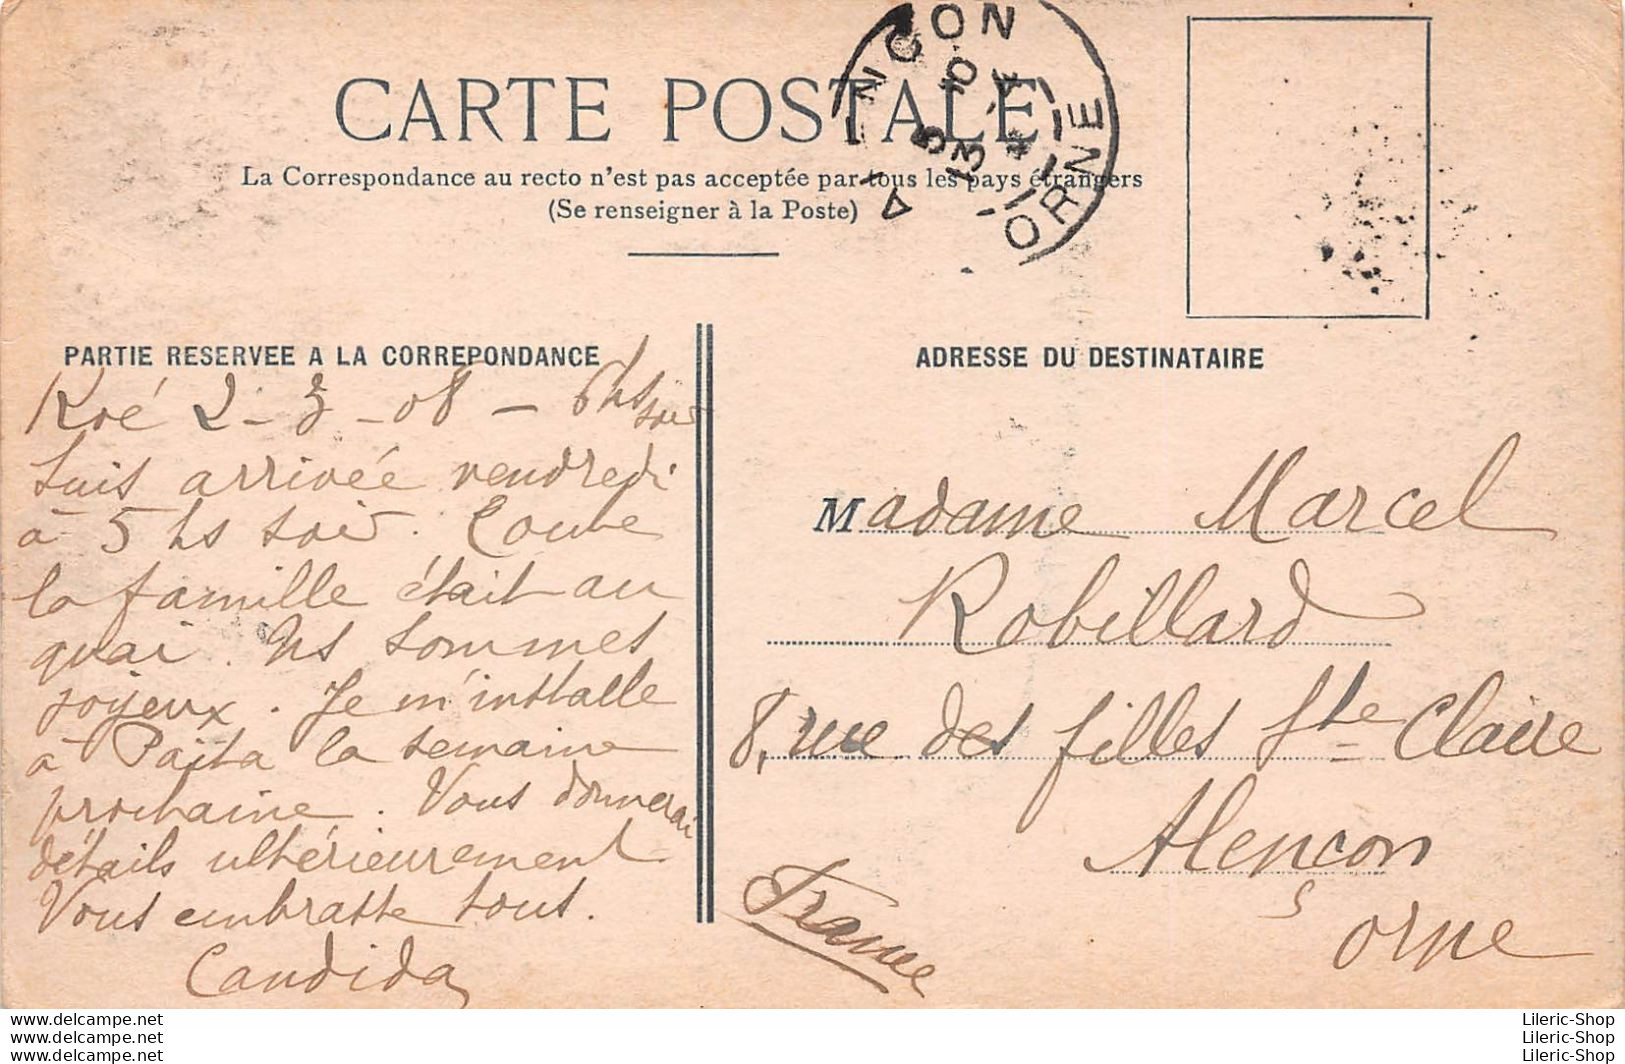 CARTE POSTALE
La Correspondance au recto n'est pas acceptée par tous les pays étrangers
(Se renseigner à la Poste)
ALENÇON
5
13
10
4
ORNE
PARTIE RESERVEE A LA CORREPONDANCE
2-3-08 - 6 hs soir
Suis arrivée vendredi
à 5 hs soir. Toute
la famille était au
quai. Ns sommes
joyeux. Je m'installe
à Paita la semaine
prochaine. Vous donnerai
détails ultérieurement
Vous embrasse tous.
Candida
ADRESSE DU DESTINATAIRE
Madame Marcel
Robillard
8, rue des filles Ste Claire
Alençon
Orne
France
www.delcampe.net
www.delcampe.net
www.delcampe.net
Lileric-Shop
Lileric-Shop
Lileric-Shop